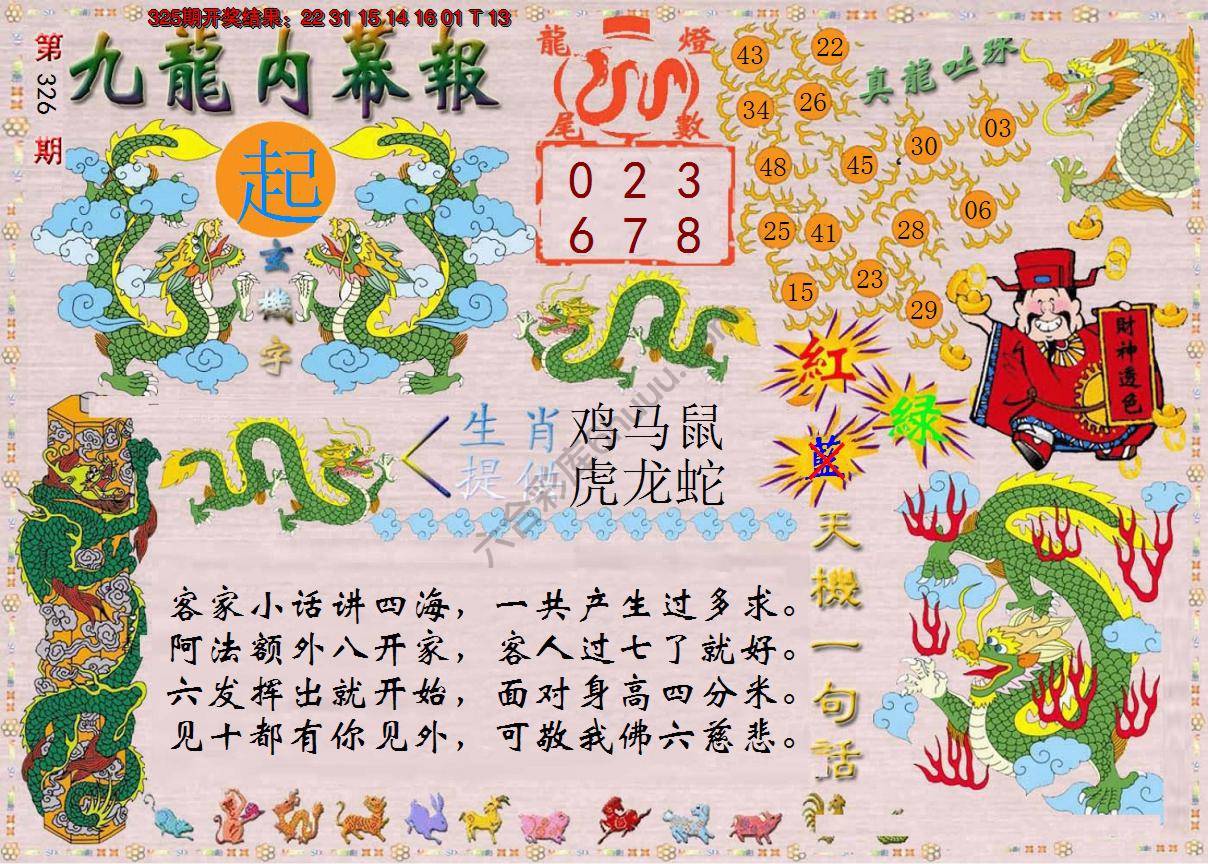 325期开奖结果：22 31 15 14 16 01 T 13
第326期
九龍内幕報
起
玄機字
龍燈
尾數
0 2 3
6 7 8
真龍吐珠
43 22
34 26
48 45 30 03
25 41 28 06
15 23 29
財神透色
紅
綠
藍
生肖 鸡马鼠
提供 虎龙蛇
天機一句話
客家小话讲四海，一共产生过多求。
阿法额外八开家，客人过七了就好。
六发挥出就开始，面对身高四分米。
见十都有你见外，可敬我佛六慈悲。